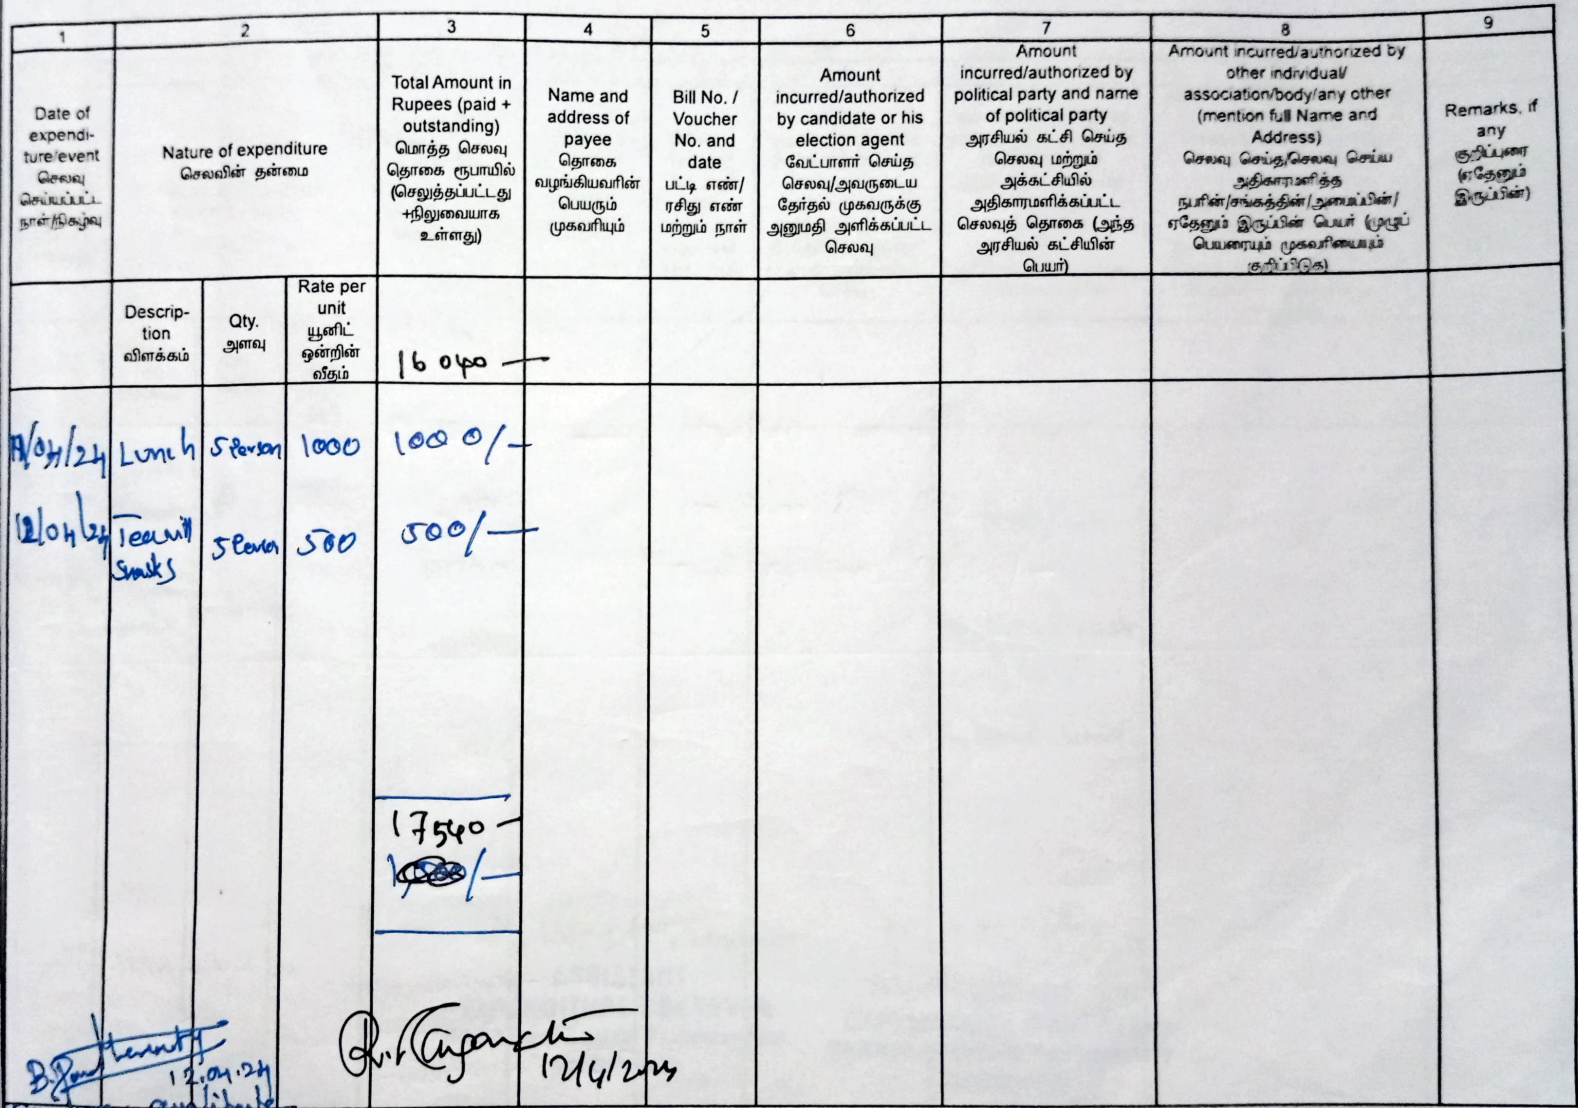 1 2 3 4 5 6 7 8 9
Date of
expendi-
ture/event
செலவு
செய்யப்பட்ட
நாள்/நிகழ்வு
Nature of expenditure
செலவின் தன்மை
Total Amount in
Rupees (paid +
outstanding)
மொத்த செலவு
தொகை ரூபாயில்
(செலுத்தப்பட்டது
+நிலுவையாக
உள்ளது)
Name and
address of
payee
தொகை
வழங்கியவரின்
பெயரும்
முகவரியும்
Bill No. /
Voucher
No. and
date
பட்டி எண்/
ரசிது எண்
மற்றும் நாள்
Amount
incurred/authorized
by candidate or his
election agent
வேட்பாளர் செய்த
செலவு/அவருடைய
தேர்தல் முகவருக்கு
அனுமதி அளிக்கப்பட்ட
செலவு
Amount
incurred/authorized by
political party and name
of political party
அரசியல் கட்சி செய்த
செலவு மற்றும்
அக்கட்சியில்
அதிகாரமளிக்கப்பட்ட
செலவுத் தொகை (அந்த
அரசியல் கட்சியின்
பெயர்)
Amount incurred/authorized by
other individual/
association/body/any other
(mention full Name and
Address)
செலவு செய்த/செலவு செய்ய
அதிகாரமளித்த
நபரின்/சங்கத்தின்/அமைப்பின்/
ஏதேனும் இருப்பின் பெயர் (முழுப்
பெயரையும் முகவரியையும்
குறிப்பிடுக)
Remarks, if
any
குறிப்புரை
(ஏதேனும்
இருப்பின்)
Descrip-
tion
விளக்கம்
Qty.
அளவு
Rate per
unit
யூனிட்
ஒன்றின்
வீதம்
16040 —
/04/24 Lunch 5 Person 1000 1000/-
12/04/24 Tea 500 500/-
Snacks
17540 -
12.04.24
12/4/2024